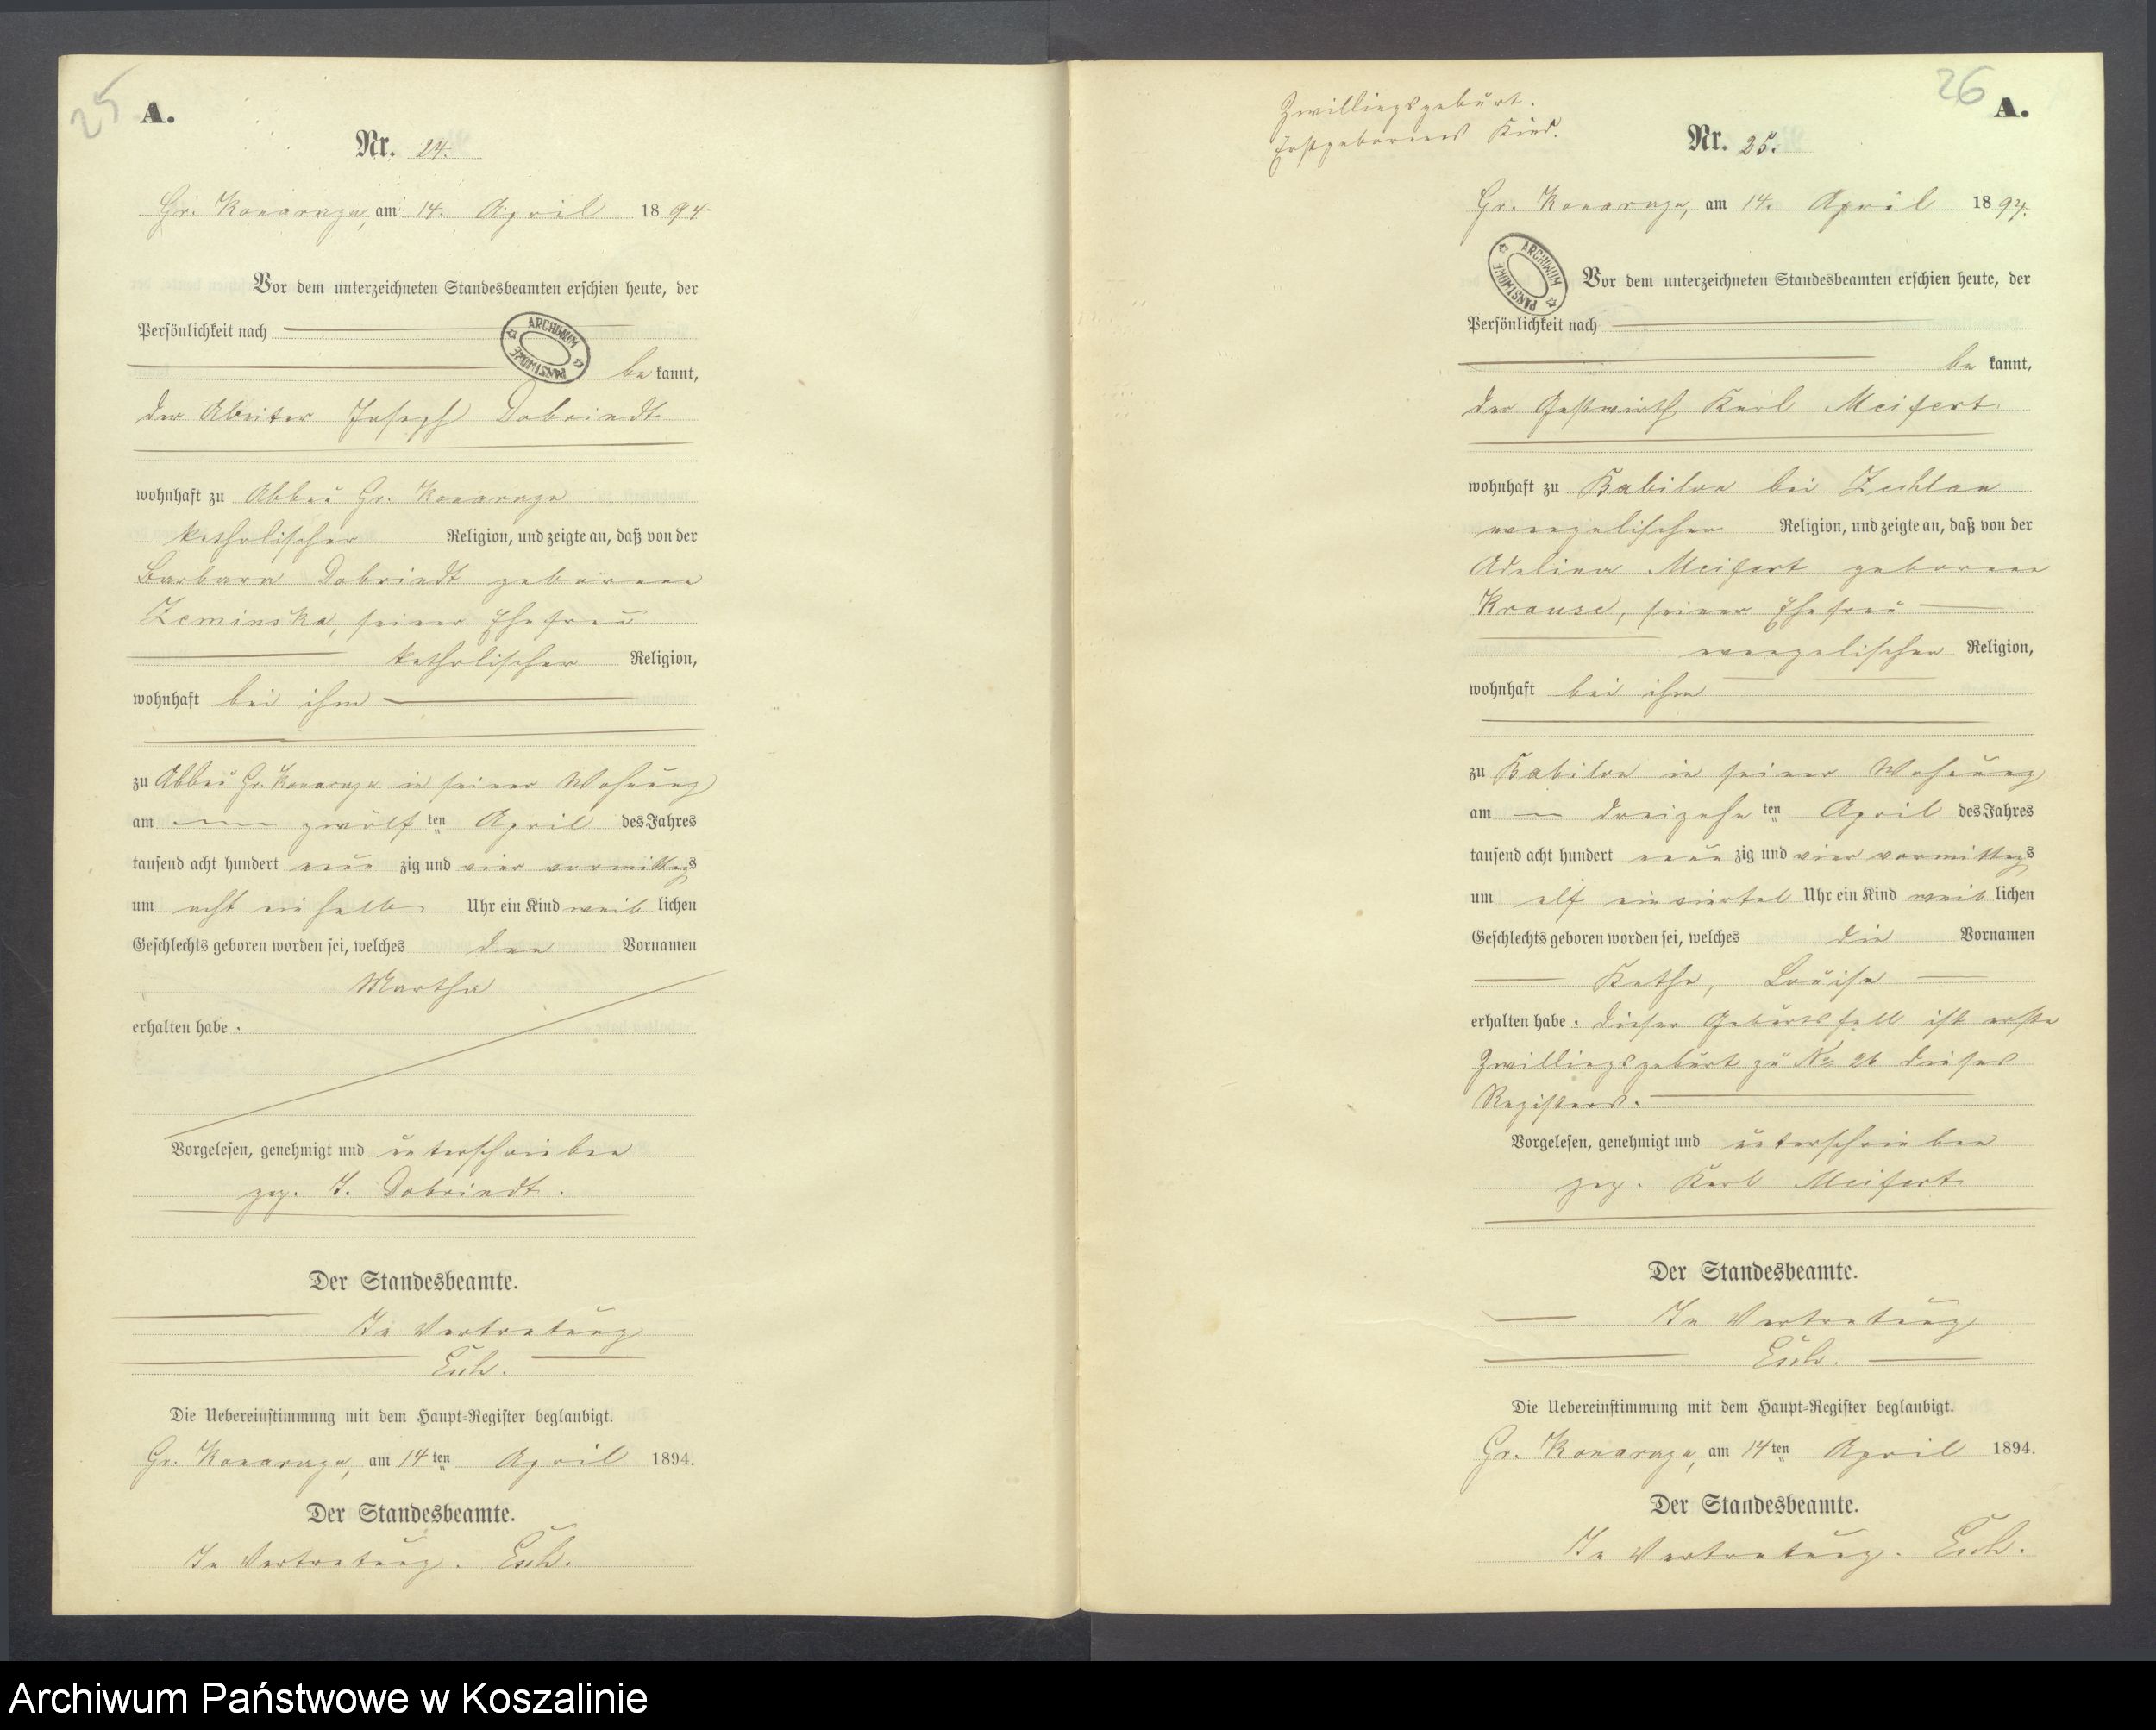 25
A.
Nr. 24.
Gr. Konarzyn, am 14. April 1894
Vor dem unterzeichneten Standesbeamten erschien heute, der
Persönlichkeit nach
ARCHIWUM PAŃSTWOWE
be kannt,
der Arbeiter Joseph Dobrindt
wohnhaft zu Abbau Gr. Konarzyn
katholischer Religion, und zeigte an, daß von der
Barbara Dobrindt geborene
Zeminska, seiner Ehefrau
katholischer Religion,
wohnhaft bei ihm
zu Abbau Gr. Konarzyn in seiner Wohnung
am zwölf ten April des Jahres
tausend acht hundert neun zig und vier vormittags
um acht ein halb Uhr ein Kind weib lichen
Geschlechts geboren worden sei, welches den Vornamen
Martha
erhalten habe.
Vorgelesen, genehmigt und unterschrieben
gez. J. Dobrindt.
Der Standesbeamte.
In Vertretung
Die Uebereinstimmung mit dem Haupt-Register beglaubigt.
Gr. Konarzyn, am 14 ten April 1894.
Der Standesbeamte.
In Vertretung.
26
A.
Zwillingsgeburt.
Erstgeborenes Kind.
Nr. 25.
Gr. Konarzyn, am 14. April 1894.
Vor dem unterzeichneten Standesbeamten erschien heute, der
ARCHIWUM PAŃSTWOWE
Persönlichkeit nach
be kannt,
der Gastwirth Karl Meifert
wohnhaft zu Babilon bei Zechlau
evangelischer Religion, und zeigte an, daß von der
Adeline Meifert geborene
Krause, seiner Ehefrau
evangelischer Religion,
wohnhaft bei ihm
zu Babilon in seiner Wohnung
am dreizehn ten April des Jahres
tausend acht hundert neun zig und vier vormittags
um elf ein viertel Uhr ein Kind weib lichen
Geschlechts geboren worden sei, welches die Vornamen
Käthe, Louise
erhalten habe. Dieser Geburtsfall ist erste
Zwillingsgeburt zu No 26 dieses
Registers.
Vorgelesen, genehmigt und unterschrieben
gez. Karl Meifert
Der Standesbeamte.
In Vertretung
Die Uebereinstimmung mit dem Haupt-Register beglaubigt.
Gr. Konarzyn, am 14 ten April 1894.
Der Standesbeamte.
In Vertretung.
Archiwum Państwowe w Koszalinie